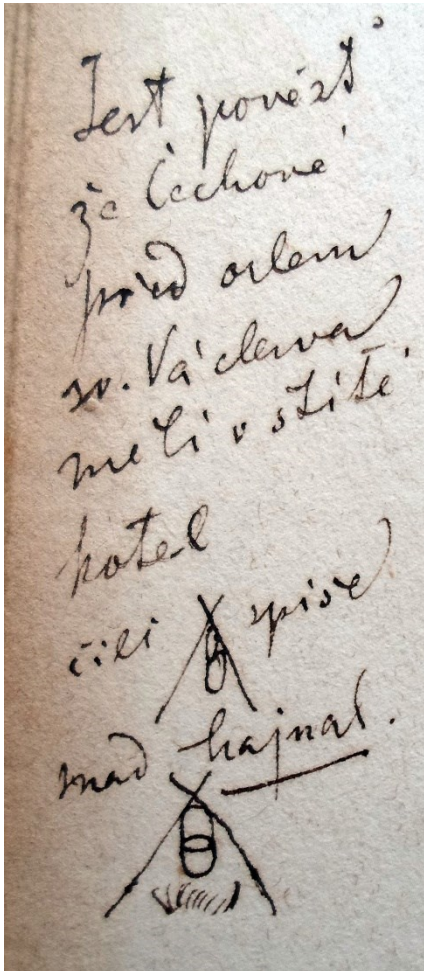 Jest pověst
že Čechové
před orlem
sv. Václava
měli v štítě
kotel
čili spíše
snad hajnal.